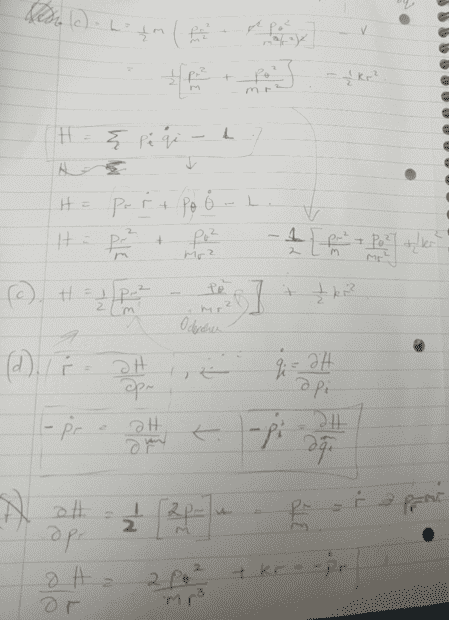 (c). L = ½ m ( pr²/m² + r² pθ²/m²r⁴ ) - V
= ½ [ pr²/m + pθ²/mr² ] - ½kr²
H = Σ pi q̇i - L
H = Σ
H = pr ṙ + pθ θ̇ - L.
H = pr²/m + pθ²/mr² - ½ [ pr²/m + pθ²/mr² ] + ½kr²
(c). H = ½ [ pr²/m - pθ²/mr² ] + ½kr²
(d). ṙ = ∂H/∂pr , ← q̇i = ∂H/∂pi
-ṗr = ∂H/∂r ← -ṗi = ∂H/∂qi
∂H/∂pr = 1/2 [ 2pr/m ] = pr/m = ṙ → pr = mṙ
∂H/∂r = 2pθ²/mr³ + kr = -ṗr